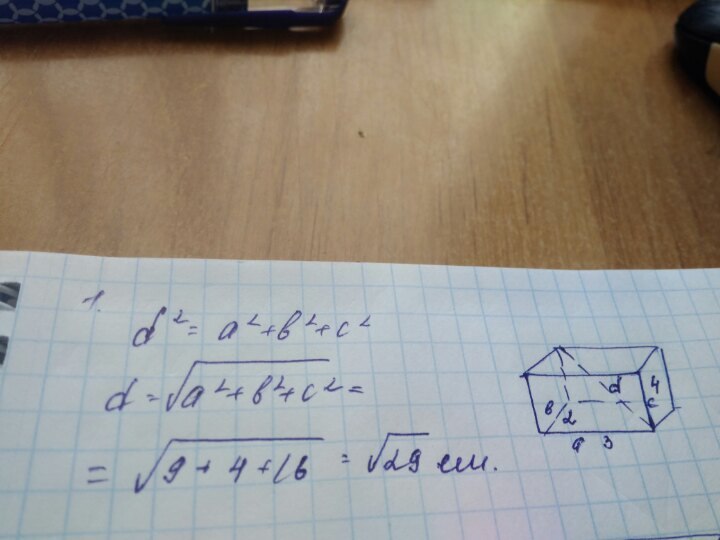 1.
d² = a²+b²+c²
d = √a²+b²+c² =
= √9+4+16 = √29 см.
d
4
c
в
2
a 3